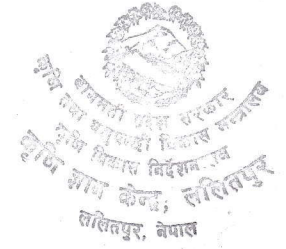 बागमती प्रदेश सरकार
कृषि तथा पशुपन्छी विकास मन्त्रालय
कृषि विकास निर्देशनालय
कृषि ज्ञान केन्द्र, ललितपुर
ललितपुर, नेपाल